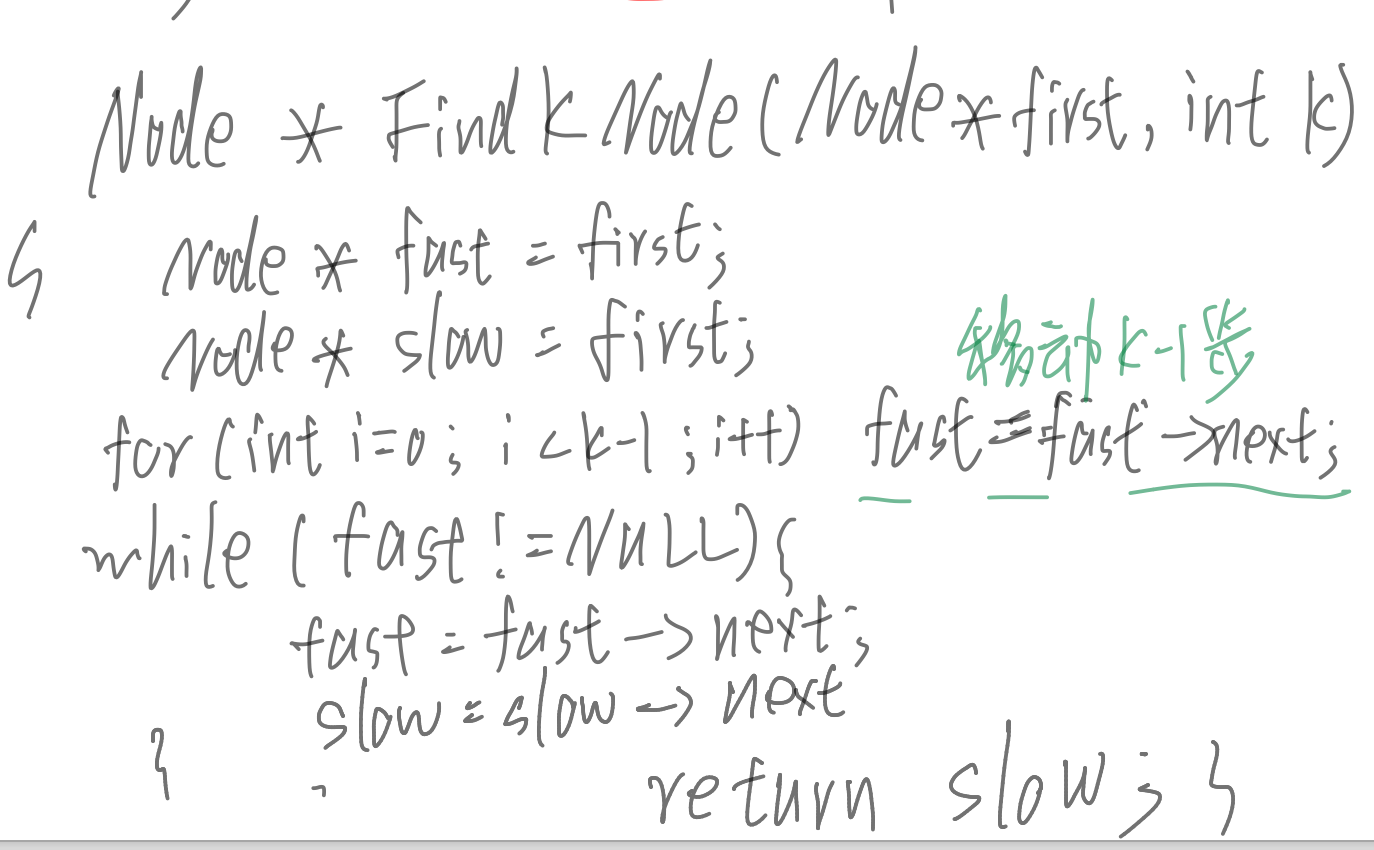 Node * Find k Node (Node * first, int k)
{ Node * fast = first;
Node * slow = first;
移动 k-1步
for (int i=0; i < k-1; i++) fast = fast -> next;
while (fast != NULL) {
fast = fast -> next;
slow = slow -> next
}
return slow; }